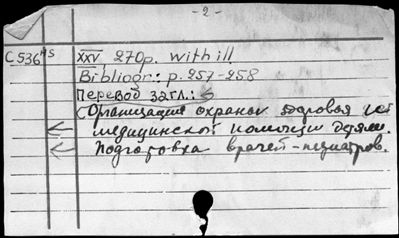 - 2 -
C536 HS XXV, 270p. with ill
Bibliogr: p. 257-258
Перевод загл.:
Организация охраны здоровья и
медицинской помощи детям.
Подготовка врачей-педиатров.